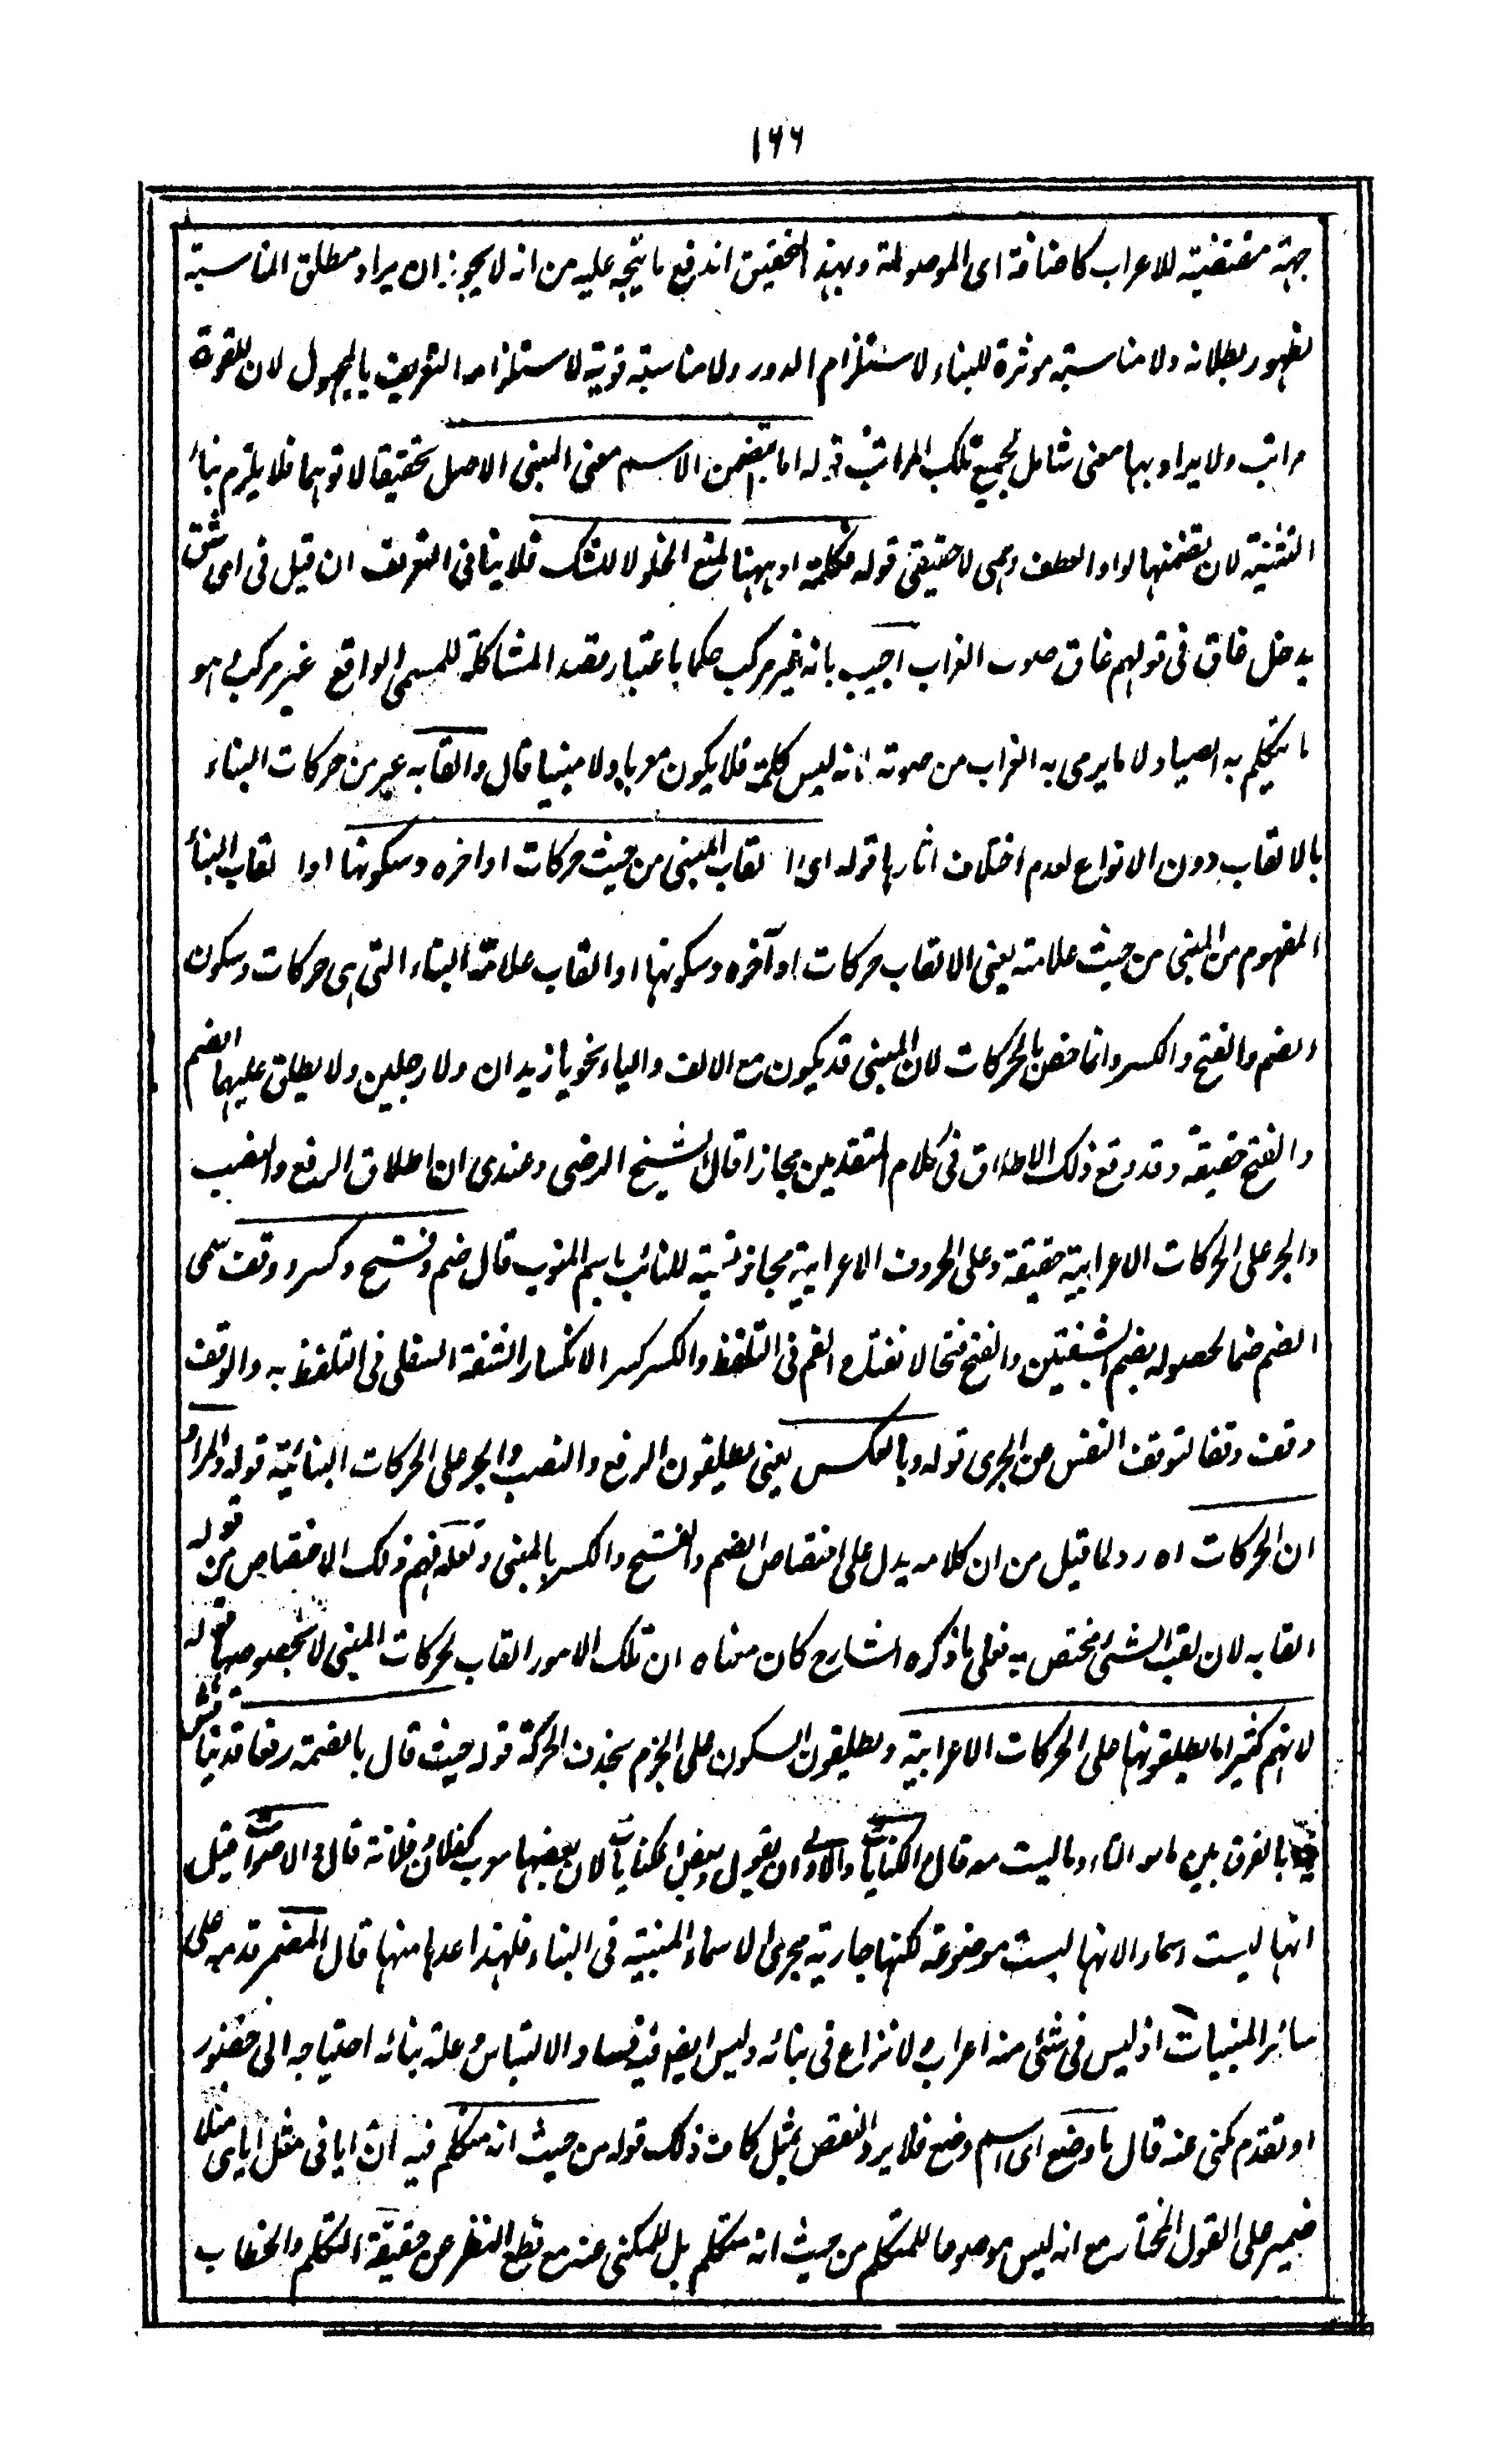 ١٦٦
جهة مقتضية للاعراب كاضافة اى الموصولة وبهذا التحقيق اندفع ما يتجه عليه من انه لا يجوز ان يراد مطلق المناسبة
لظهور بطلانه ولا مناسبة موثرة للبناء لاستلزام الدور ولا مناسبة قوية لاستلزامه التعريف بالمجهول لان للقوة
مراتب ولا يراد بها معنى شامل لجميع تلك المراتب قوله اما بتضمن الاسم معنى المبنى الاصل تحقيقا لا توهما فلا يلزم بناء
التثنية لان تضمنها لواو العطف وهمى لا حقيقى قوله فكلمة او ههنا لمنع الخلو لا للشك فلا ينافى التعريف ان قيل فى اى شق
يدخل غاق فى قولهم غاق صوت الغراب اجيب بانه غير مركب حكما باعتبار قصد المشاكلة للمسمى الواقع غير مركب هو
ما يتكلم به الصياد لا ما يرمى به الغراب من صوته لانه ليس كلمة فلا يكون معربا ولا مبنيا قال والقابه عبر عن حركات البناء
بالالقاب دون الانواع لعدم اختلاف اثارها قوله اى القاب المبنى من حيث حركات اواخره وسكونها او القاب البناء
المفهوم من المبنى من حيث علامته يعنى الالقاب حركات اواخره وسكونها او القاب علامة البناء التى هى حركات وسكون
والضم والفتح والكسر وانما خص بالحركات لان المبنى قد يكون مع الالف والياء نحو يا زيدان ولا رجلين ولا يطلق عليهما الضم
والفتح حقيقة وقد وقع ذلك الاطلاق فى كلام المتقدمين مجازا قال الشيخ الرضى وعندى ان اطلاق الرفع والنصب
والجر على الحركات الاعرابية حقيقة وعلى الحروف الاعرابية مجاز تسمية للنائب باسم المنوب قال ضم وفتح وكسر ووقف سمى
الضم ضما لحصوله بضم الشفتين والفتح فتحا لانفتاح الفم فى التلفظ والكسر كسرا لانكسار الشفة السفلى فى التلفظ به والوقف
وقف وقفا لتوقف النفس عن الجرى قوله وبالعكس يعنى يطلقون الرفع والنصب والجر على الحركات البنائية قوله والمراد
ان الحركات اه رد لما قيل من ان كلامه يدل على اختصاص الضم والفتح والكسر بالمبنى ولعله فهم ذلك الاختصاص من قوله
القابه لان لقب الشئ مختص به فعلى ما ذكره الشارح كان معناه ان تلك الامور القاب لحركات المبنى لا بخصوصها قوله
لانهم كثيرا ما يطلقونها على الحركات الاعرابية ويطلقون السكون على الجزم بحذف الحركة قوله حيث قال بالضمة رفعا قد يناقش
بالفرق بين ما مع التاء وما ليست معه قال والكنايات والاولى ان يقول وبعض الكنايات لان بعضها معرب كفلان وفلانة قال والاصوات قيل
انها ليست اسماء لانها ليست موضوعة لكنها جارية مجرى الاسماء المبنية فى البناء فلهذا عدها منها قال المضمر قدمه على
سائر المبنيات اذ ليس فى شئ منه اعراب ولا نزاع فى بنائه وليس ايضا فيه فساد الالتباس وعلة بنائه احتياجه الى حضور
او تقدم مكنى عنه قال ما وضع اى اسم وضع فلا يرد النقض بمثل كاف ذلك قوله من حيث انه متكلم فيه ان ايا فى مثل اياى مثلا
ضمير على القول المختار مع انه ليس موضوعا للمتكلم من حيث انه متكلم بل للمكنى عنه مع قطع النظر عن حقيقة التكلم والخطاب